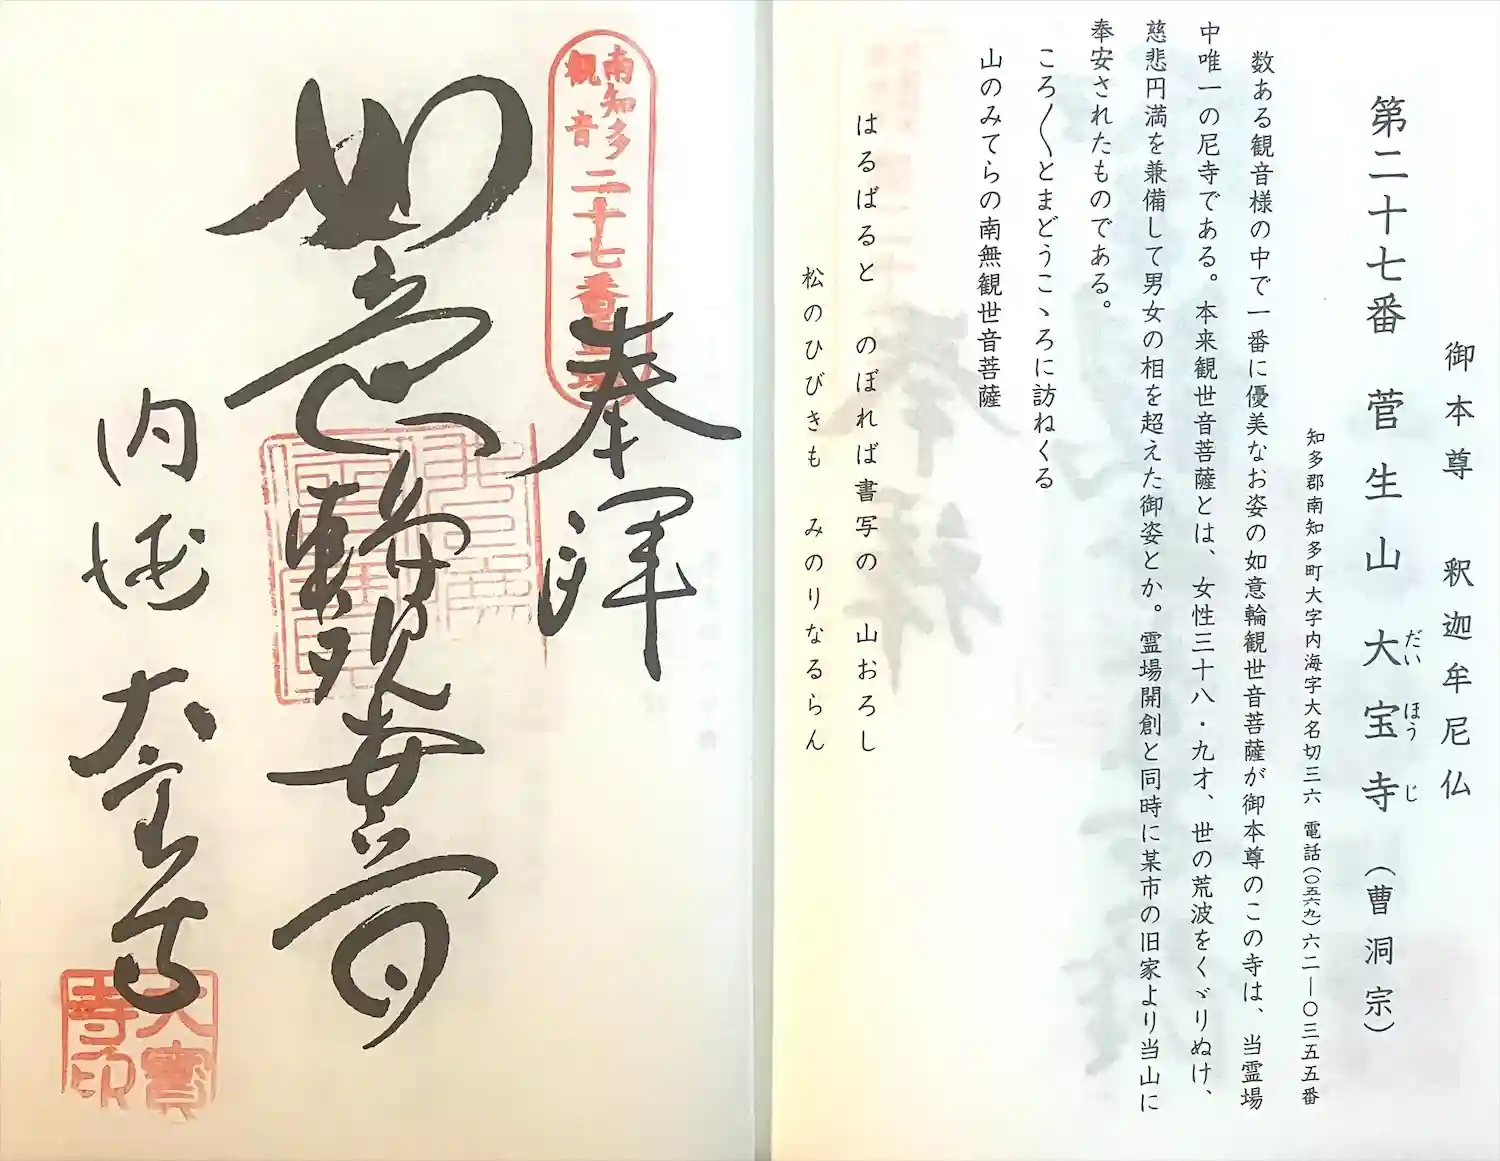 御本尊 釈迦牟尼仏
第二十七番 菅生山 大宝寺 (曹洞宗)
だいほうじ
知多郡南知多町大字内海字大名切三六 電話(〇五六九)六二―〇三五五番
数ある観音様の中で一番に優美なお姿の如意輪観世音菩薩が御本尊のこの寺は、当霊場
中唯一の尼寺である。本来観世音菩薩とは、女性三十八・九才、世の荒波をくゞりぬけ、
慈悲円満を兼備して男女の相を超えた御姿とか。霊場開創と同時に某市の旧家より当山に
奉安されたものである。
ころ〳〵とまどうこゝろに訪ねくる
山のみてらの南無観世音菩薩
はるばると のぼれば書写の 山おろし
松のひびきも みのりなるらん
奉拝
南知多
観音
二十七番霊場
如意輪観世音
内海 大宝寺
大寶
寺印